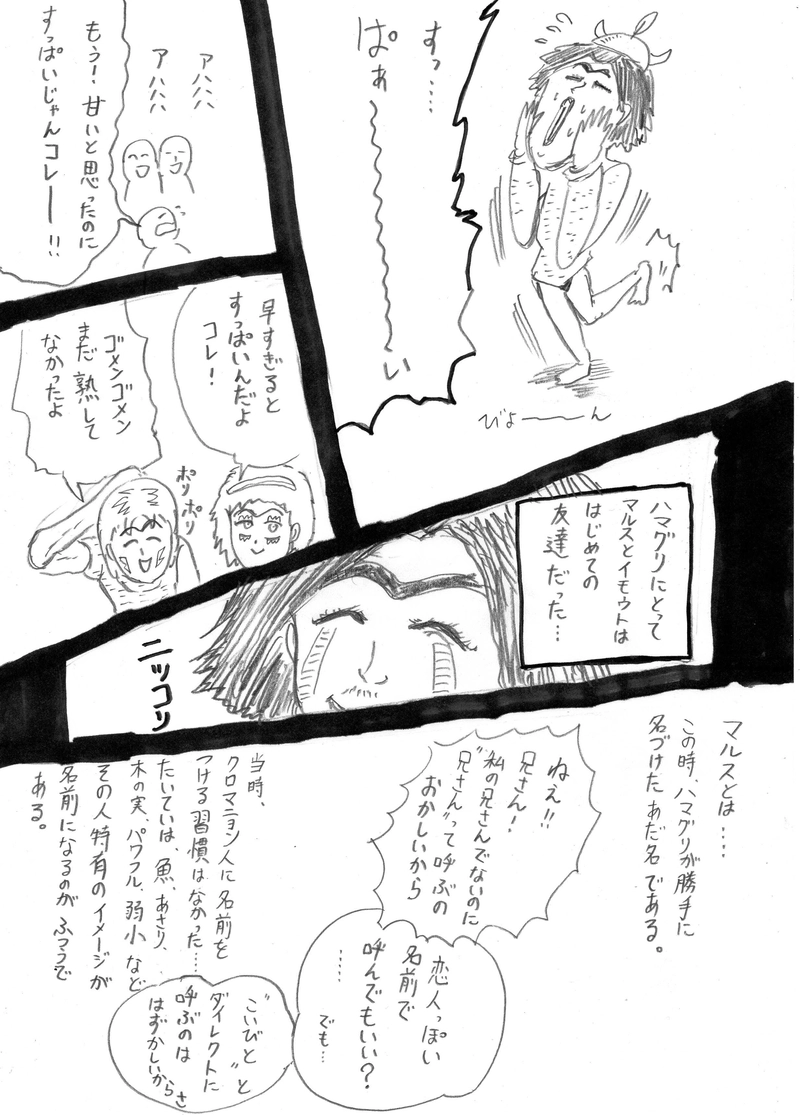 すっ・・・・
ぱぁ〜〜〜〜い
びょーーーん
アハハハ
アハハハ
もう!、甘いと思ったのに
すっぱいじゃんコレー!!
早すぎると
すっぱいんだよ
コレ!
ゴメンゴメン
まだ熟して
なかったよ
ポリポリ
ハマグリにとって
マルスとイモウトは
はじめての
友達だった…
ニッコリ
マルスとは・・・・
この時、ハマグリが勝手に
名づけたあだ名である。
ねえ!!
兄さん!
“私の兄さんでないのに
兄さん”って呼ぶの
おかしいから
恋人っぽい
名前で
呼んでもいい?
・・・・・
でも…
“こいびと”と
ダイレクトに
呼ぶのは
はずかしいからさ
当時、
クロマニョン人に名前を
つける習慣はなかった…
たいていは、魚、あさり、
木の実、パワフル、弱小など
その人特有のイメージが
名前になるのがふつうで
ある。